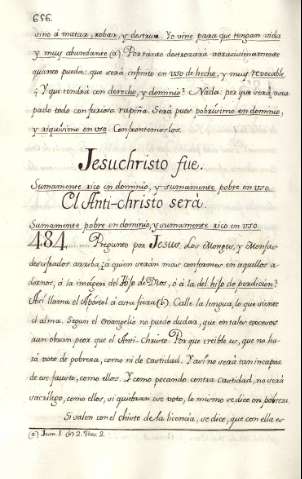 656.
vino á matar, robar, y destruir. Yo vine para que tengan vida
y muy abundante (a). Por tanto destrozará apasionadamente
quanto pueda: que será infinito en uso de hecho, y muy revocable.
¿Y que tendrá con derecho, y dominio? Nada: por que será usur
pado todo con furiosa rapiña. Será pues pobrísimo en dominio,
y riquísimo en uso. Confrontemoslos.
Jesuchristo fue.
Sumamente rico en dominio, y sumamente pobre en uso.
El Anti-christo será.
Sumamente pobre en dominio, y sumamente rico en uso.
484. Pregunto por Jesus, Los Monges, y Monjas
arriba ¿á quien serán mas conformes en aquellos
á la imagen del Hijo de Dios, ó á la del hijo de perdicion?
Asi llama el Apóstol á esta fiera (b). Calle la lengua, lo que siente
el alma. Segun el evangelio no puede dudar, que en tales excesos
aun obran peor que el Anti-Christo. Por que creible es, que no ha
rá voto de pobreza, como ni de castidad. Y asi no será tan incapaz
de ese fausto, como ellos. Y como pecando contra castidad, no será
sacrilego, como ellos, si quebrantare voto, lo mismo se dice en pobreza.
Si salen con el chiste de la licencia, se dice, que con ella es
(a) Joan. 1 (b) 2. Thes. 2.